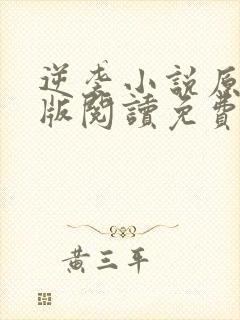 逆袭小說原
版閱讀免費
黃三平